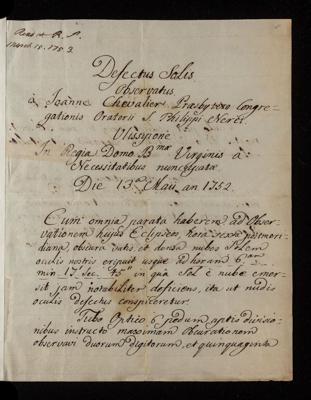 Read at R. S.
March 15. 1753
Defectus Solis
Observatus
à Joanne Chevalier, Præsbytero Congre-
gationis Oratorii S. Philippi Nerei
Ulissipone
In Regia Domo B.mæ Virginis à
Necessitatibus nuncupata
Die 13.a Maii an. 1752.
Cum omnia parata haberem ad Obser-
vationem hujus Eclypseos, hora sexta postmeri-
diana, obscura satis, et densa nubes Solem
oculis nostris eripuit usque ad horam 6.am
min. 17. Sec. 45" in qua Sol è nube emer-
sit jam notabiliter deficiens, ita ut nudis
oculis defectus conspiceretur.
Tubo Optico 6 pedum aptis divisio-
nibus instructo maximam obscurationem
observavi duorum digitorum, et quinquaginta